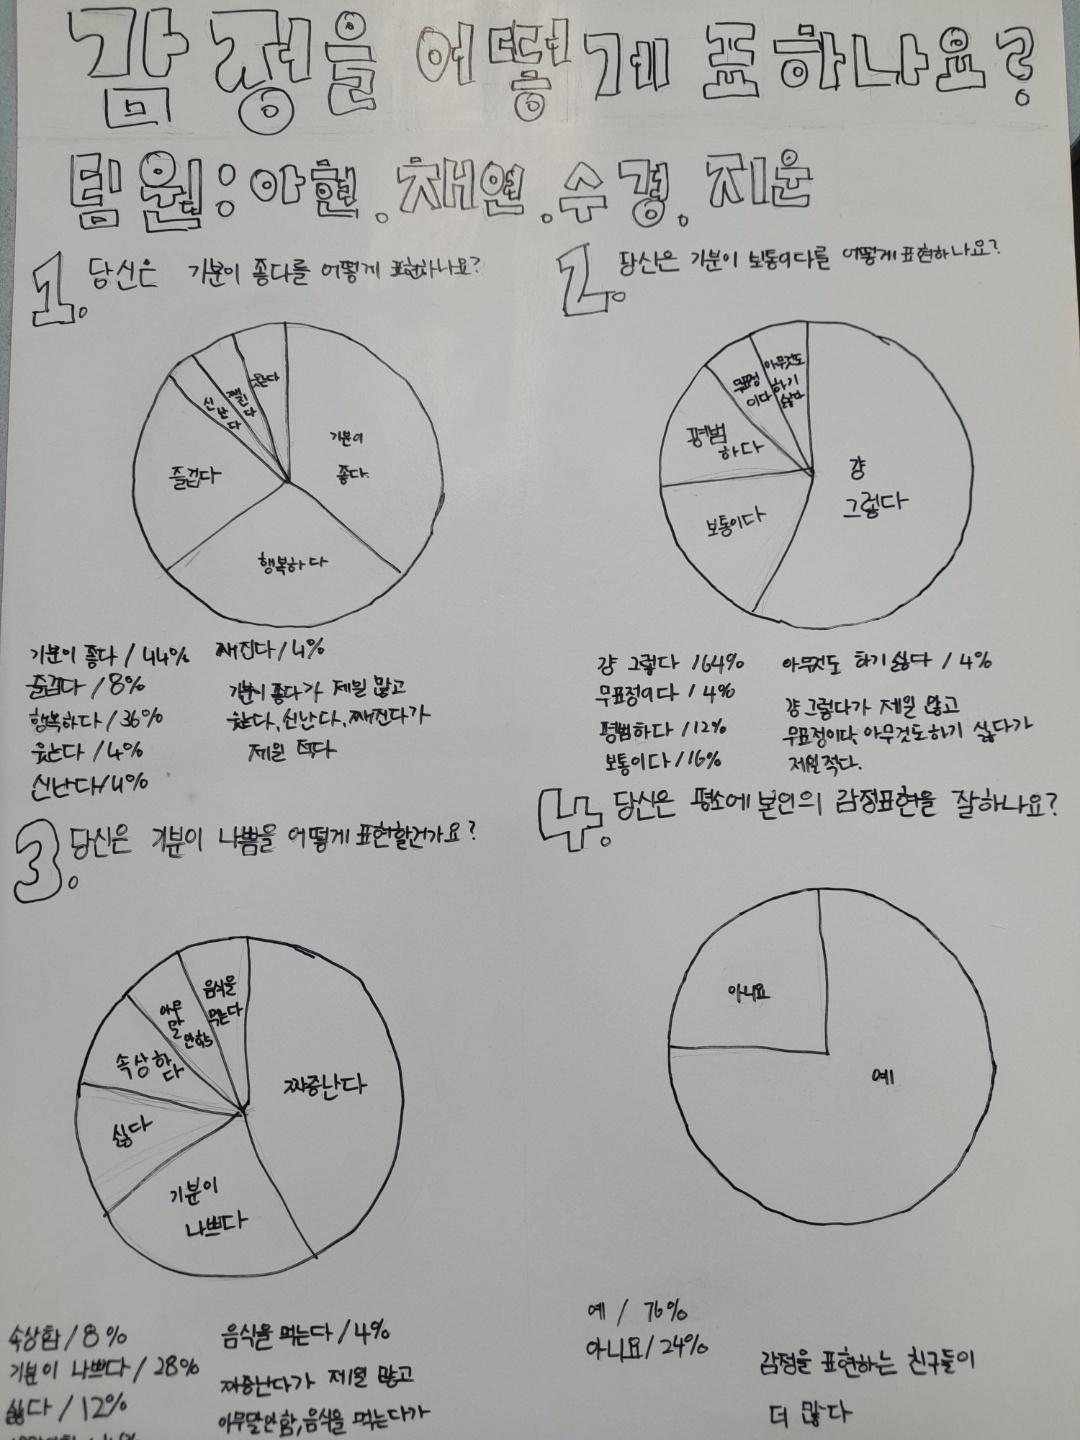 감정을 어떻게 표하나요?
팀원:아현.채연.수경.지운
1. 당신은 기분이 좋다를 어떻게 표현하나요?
웃는다
째진다
신난다
즐겁다
기분이
좋다.
행복하다
기분이 좋다/44%
즐겁다/8%
행복하다/36%
웃는다/4%
신난다/4%
째진다/4%
기분이 좋다가 제일 많고
웃는다,신난다,째진다가
제일 적다
2. 당신은 기분이 보통이다를 어떻게표현하나요?
아무것도
하기
싫다
무표정
이다
평범
하다
보통이다
걍
그렇다
걍 그렇다/64%
무표정이다/4%
평범하다/12%
보통이다/16%
아무것도 하기싫다/4%
걍그렇다가 제일 많고
무표정이다, 아무것도하기 싫다가
제일적다.
3. 당신은 기분이 나쁨을 어떻게표현할건가요?
음식을
먹는다
아무
말
안함
속상하
다
싫다
기분이
나쁘다
짜증난다
속상함/8%
기분이 나쁘다/28%
싫다/12%
음식을 먹는다/4%
짜증난다가 제일 많고
아무말안함,음식을 먹는다가
4. 당신은 평소에본인의 감정표현을 잘하나요?
아니요
예
예/76%
아니요/24%
감정을 표현하는 친구들이
더 많다